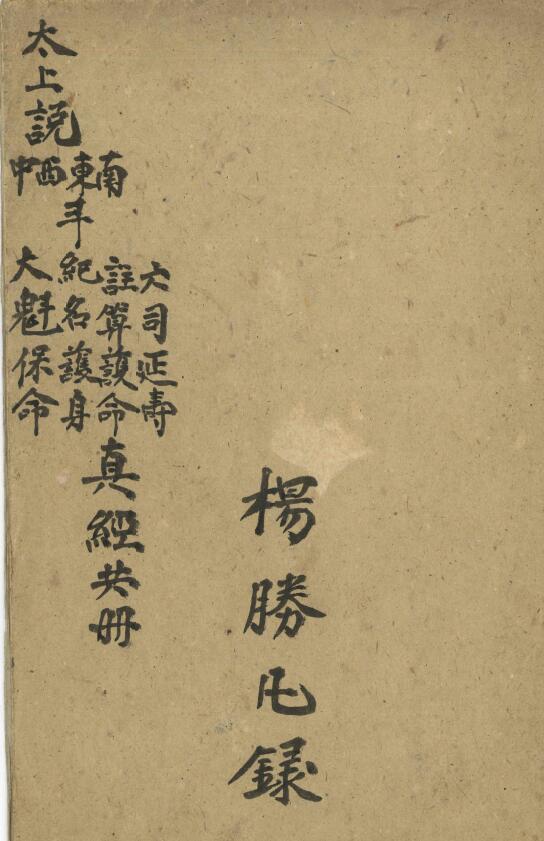 太上說
南東西中
斗
六司延壽
註算護命
紀名護身
大魁保命
真經共冊
楊勝錄